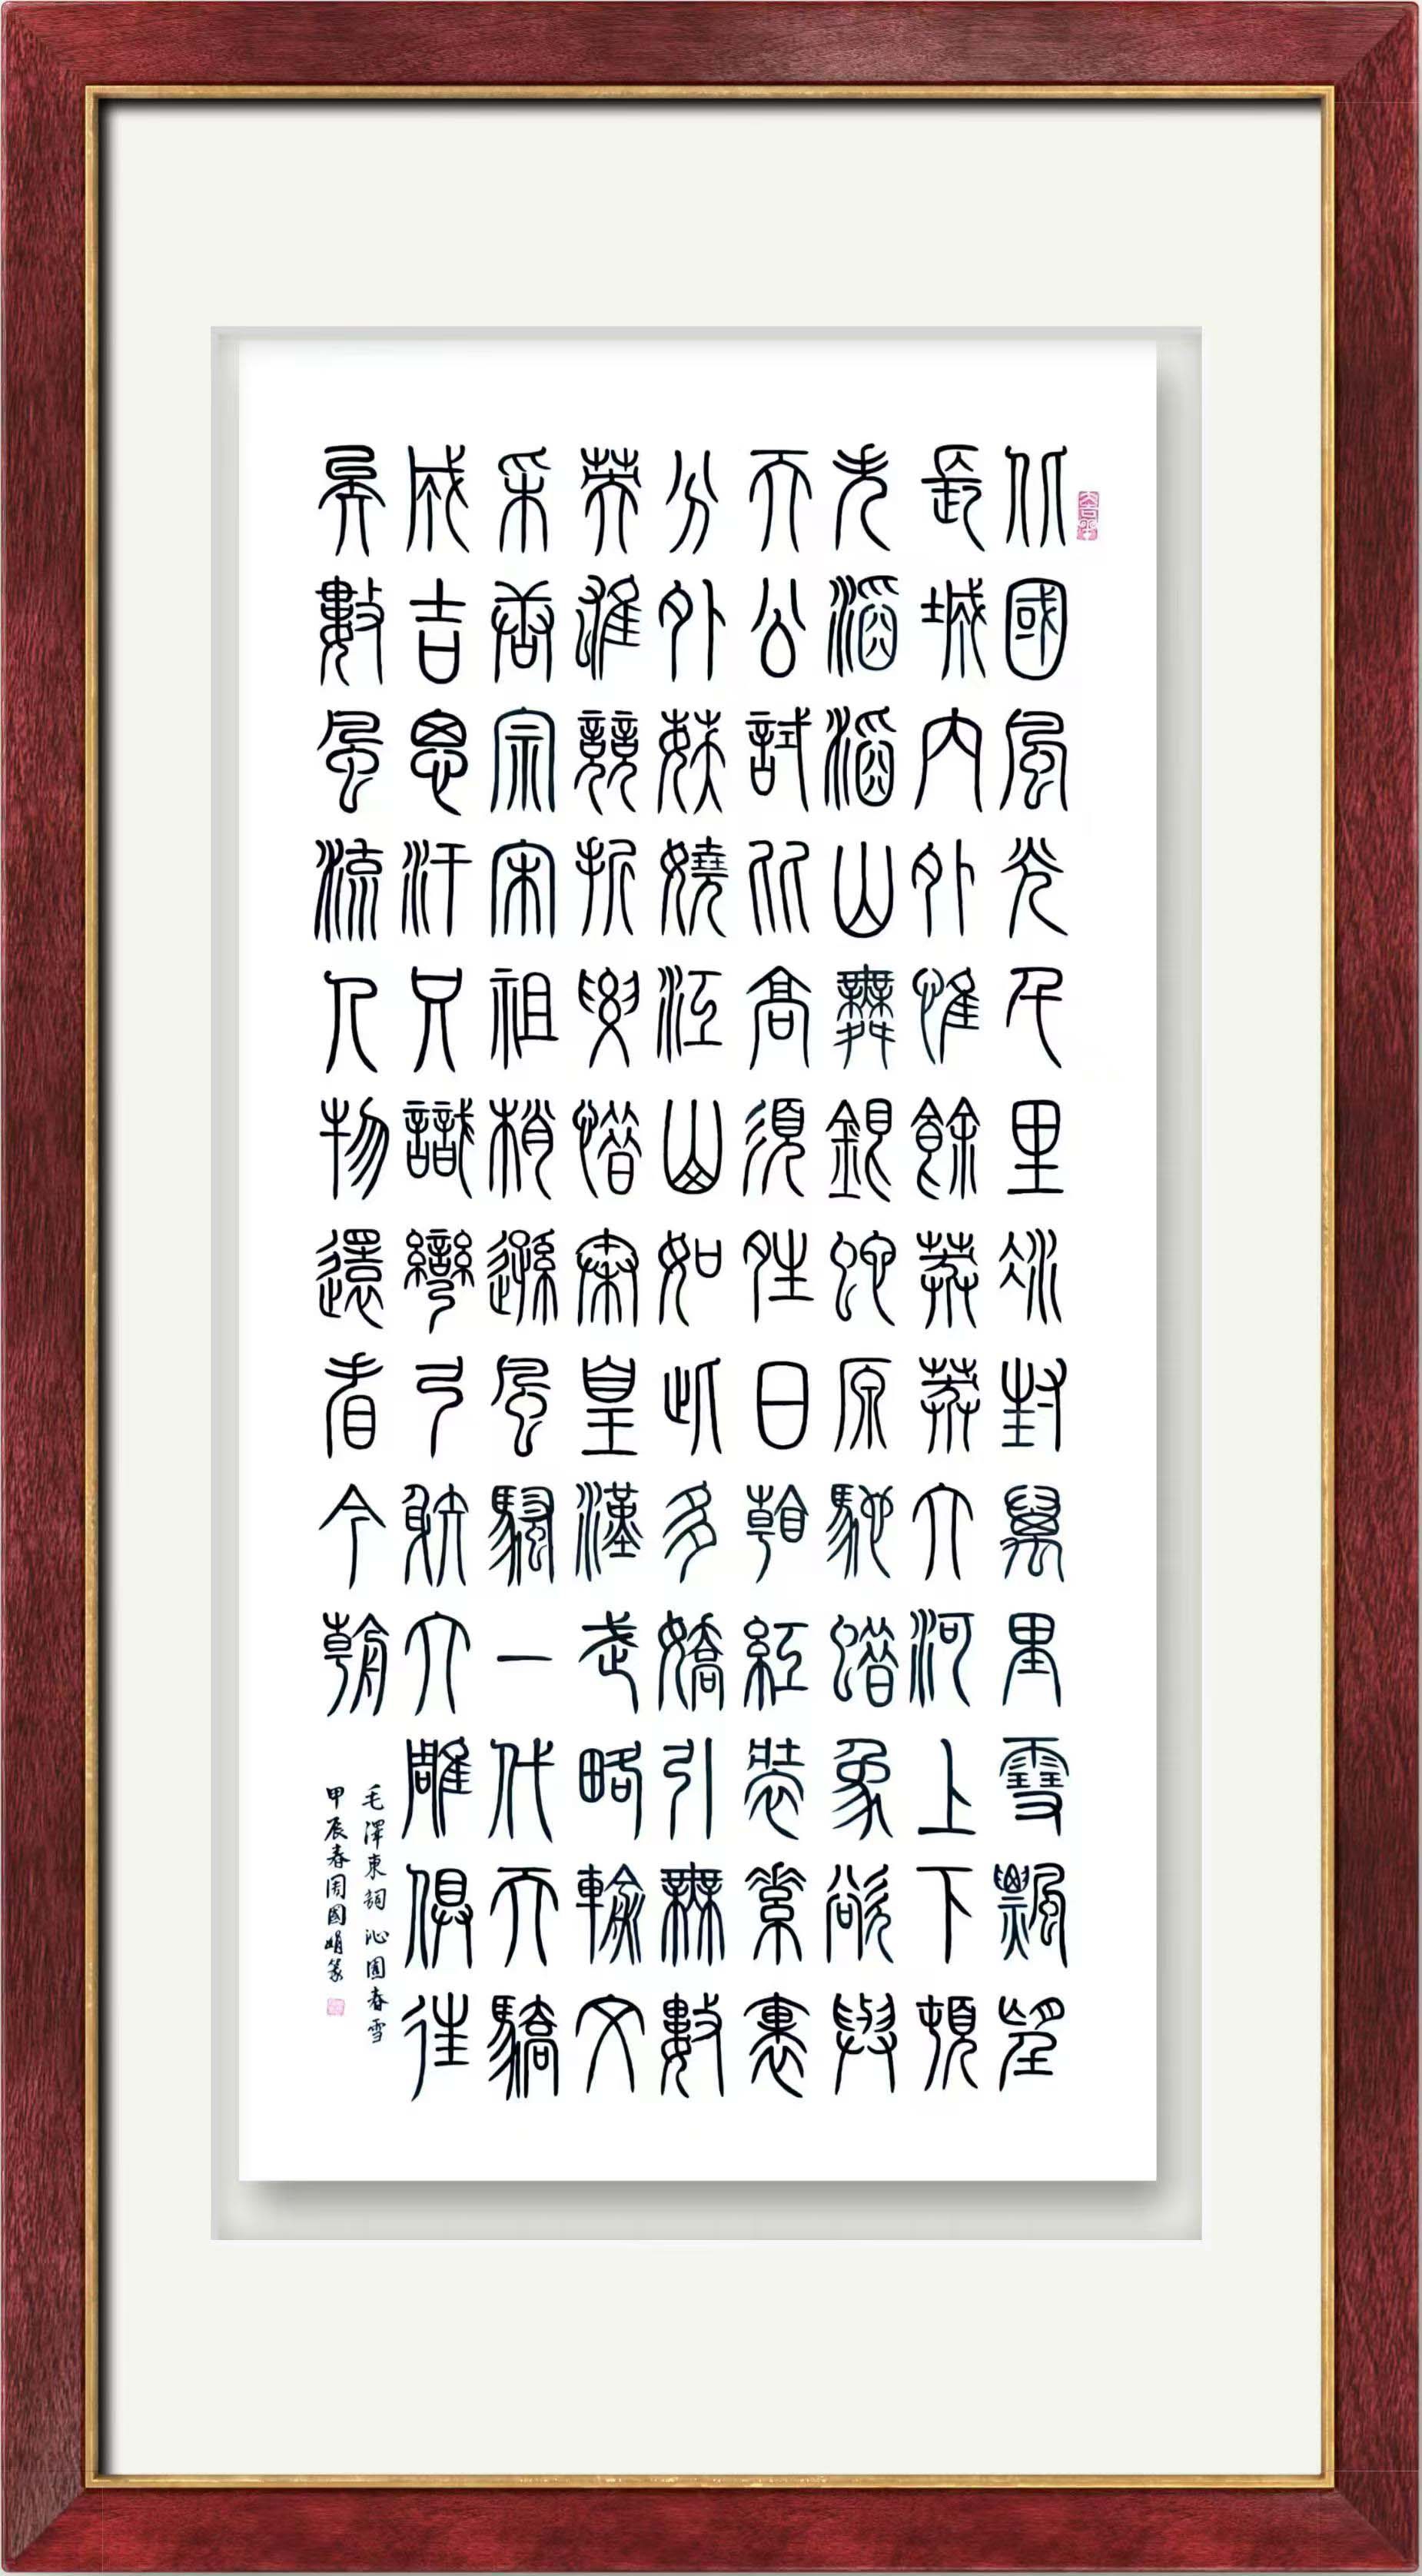 北國風光千里冰封萬里雪飄望
長城內外惟餘莽莽大河上下頓
失滔滔山舞銀蛇原馳蜡象欲與
天公試比高須晴日看紅裝素裹
分外妖嬈江山如此多嬌引無數
英雄競折腰惜秦皇漢武略輸文
采唐宗宋祖稍遜風騷一代天驕
成吉思汗只識彎弓射大雕俱往
矣數風流人物還看今朝
毛澤東詞 沁園春雪
甲辰春周國娟篆